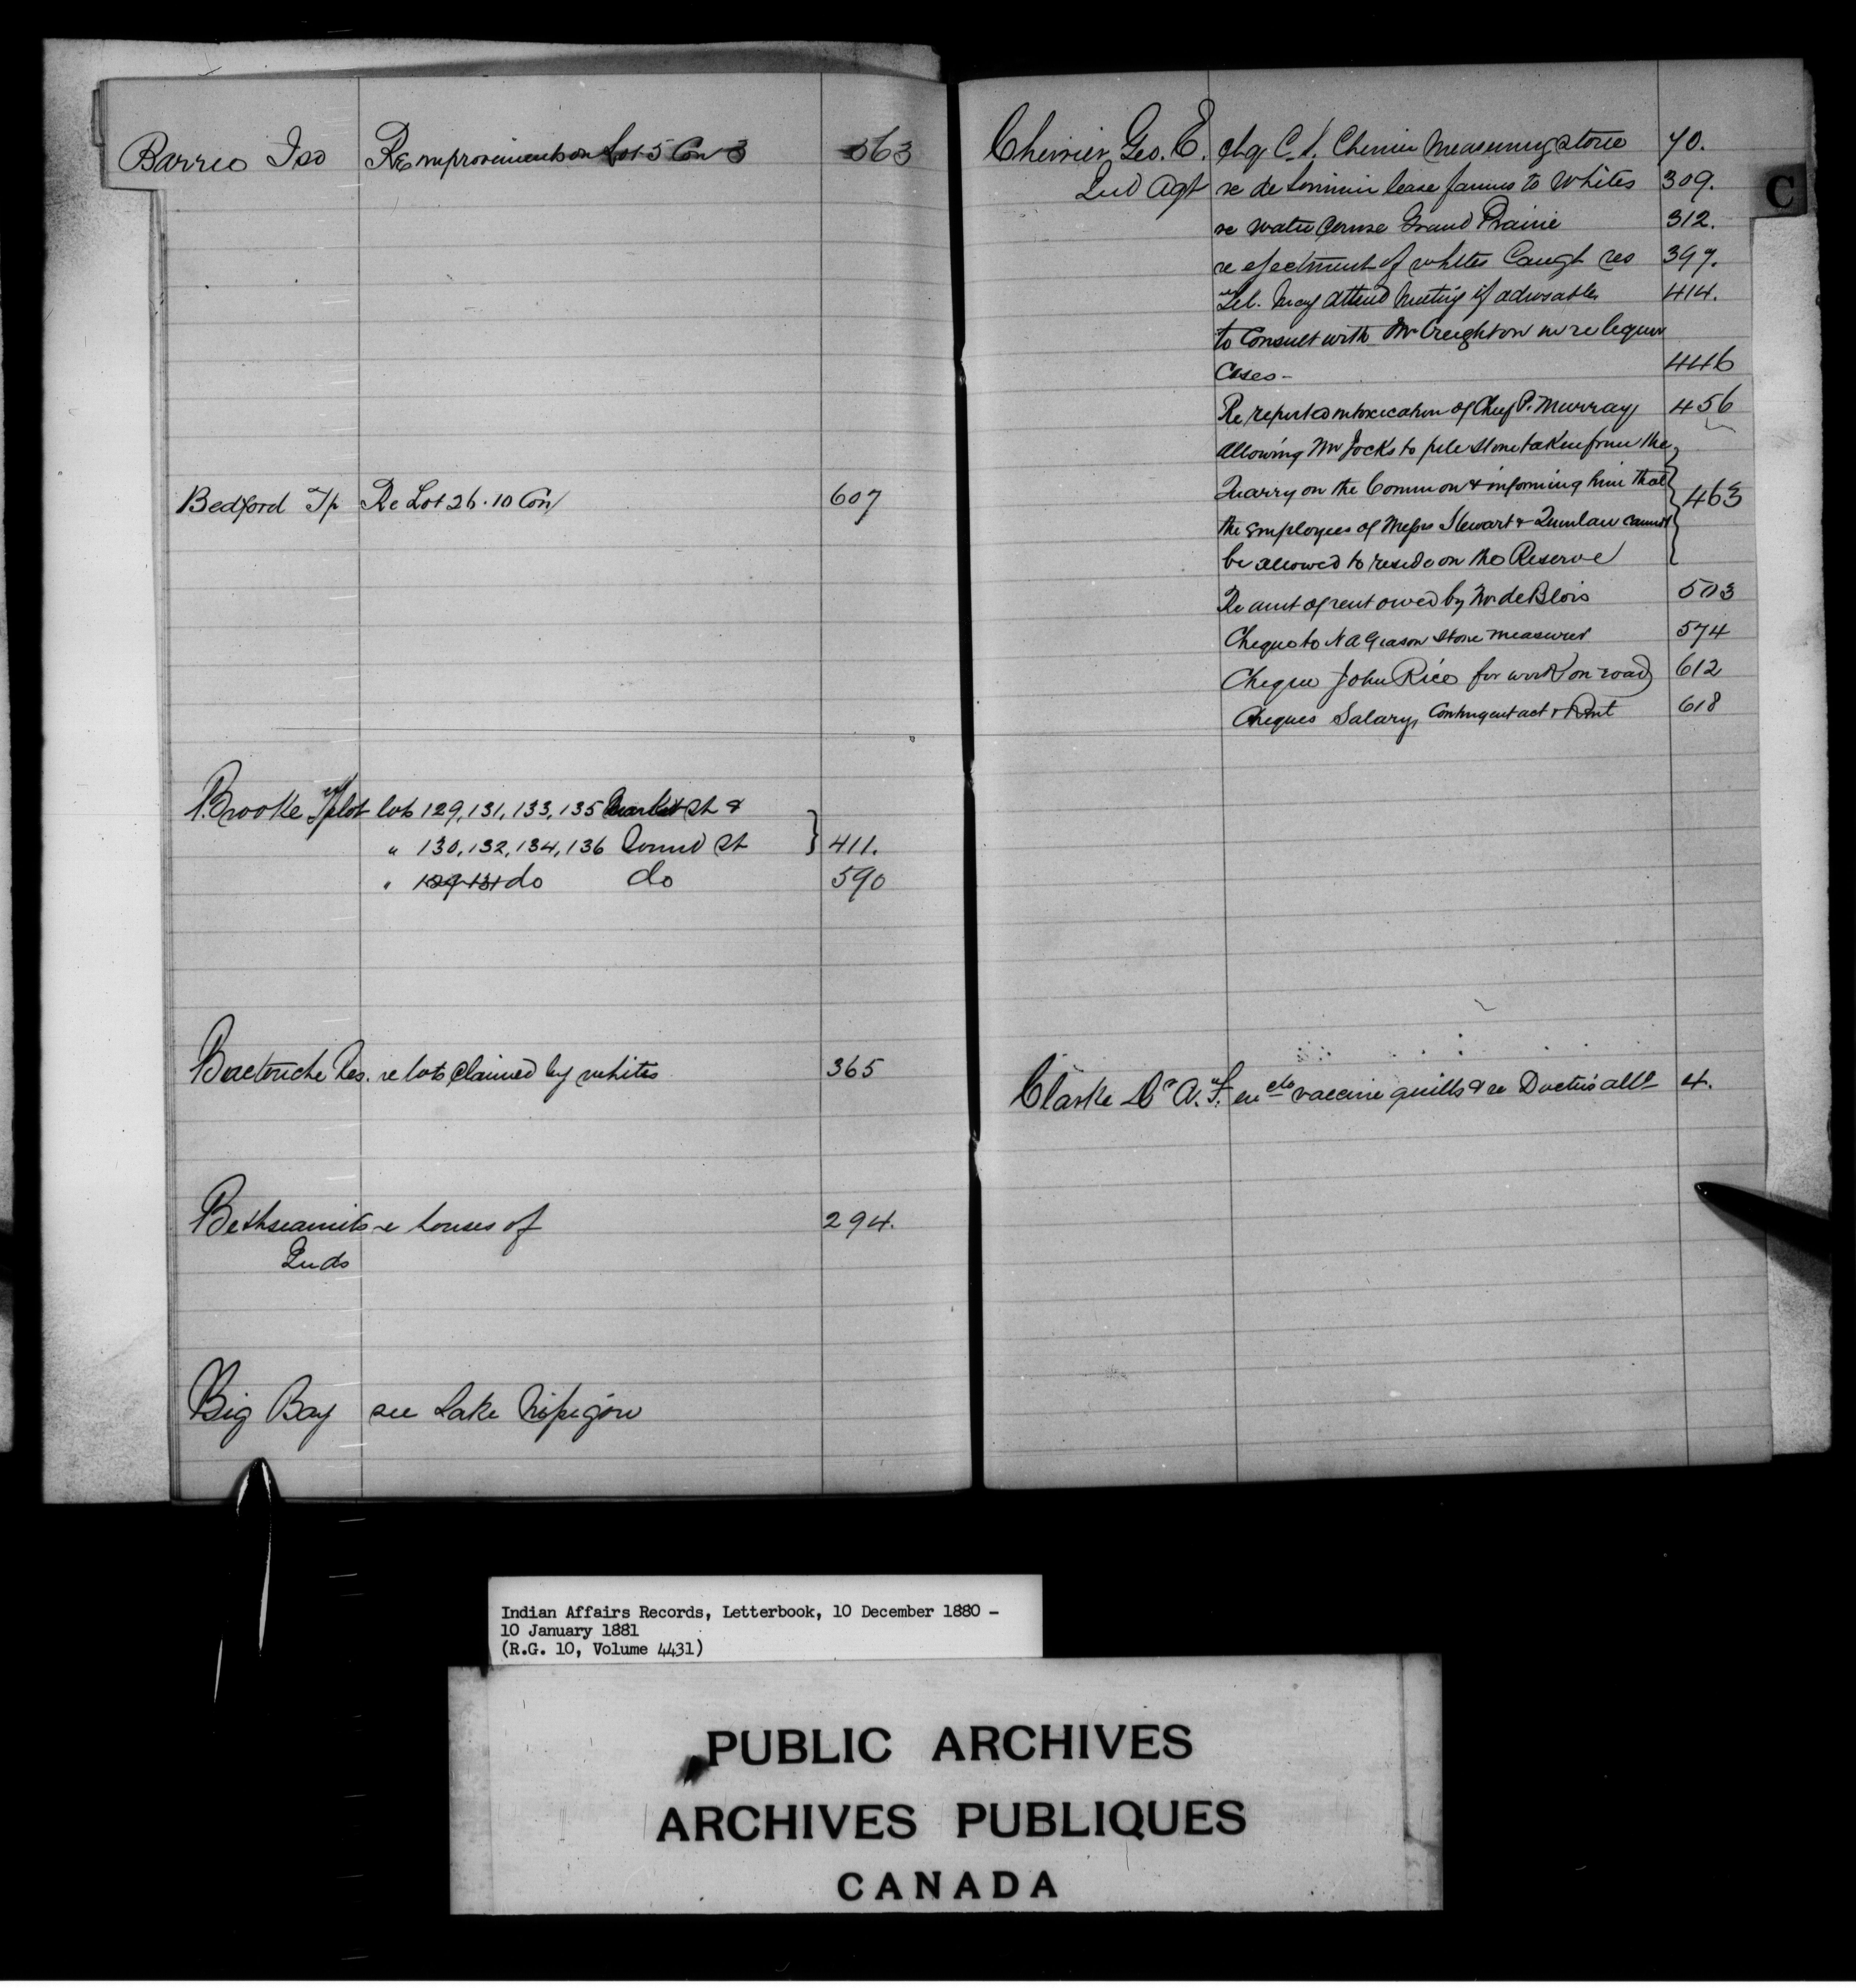 Barrie Iso Re improvements on Lot 5 Con 3 563
Bedford Tp Re Lot 26. 10 Con 607
Brooke T plot lots 129, 131, 133, 135 Market St &
" 130, 132, 134, 136 Sound St } 411.
" 129-131 do do 590
Buctouche Res. re lots claimed by whites 365
Bethseamits re houses of 294.
Inds
Big Bay see Lake Nipigon
C
Cherrier Geo. E. chq C. Cherrier Measuring stone 70.
Ind Agt re de Lorimier lease farms to whites 309.
re water course Grand Prairie 312.
re ejectment of whites Caugh res 397.
Tel. May attend Meeting if advisable 414.
to Consult with Mr Creighton in re liquor
Cases - 446
Re reported intoxication of Chief P. Murray 456
Allowing Mr Jocks to pile stone taken from the
Quarry on the Common & informing him that } 463
the employees of Messrs Stewart & Quinlan cannot
be allowed to reside on the Reserve
Re amt of rent owed by Mr de Blois 503
Cheque to N A Giason Stone measurer 574
Cheque John Rice for work on road 612
Cheques Salary, Contingent act & Rent 618
Clarke Dr A. T. en clo vaccine quills & re Doctors allce 4.
Indian Affairs Records, Letterbook, 10 December 1880 -
10 January 1881
(R.G. 10, Volume 4431)
PUBLIC ARCHIVES
ARCHIVES PUBLIQUES
CANADA